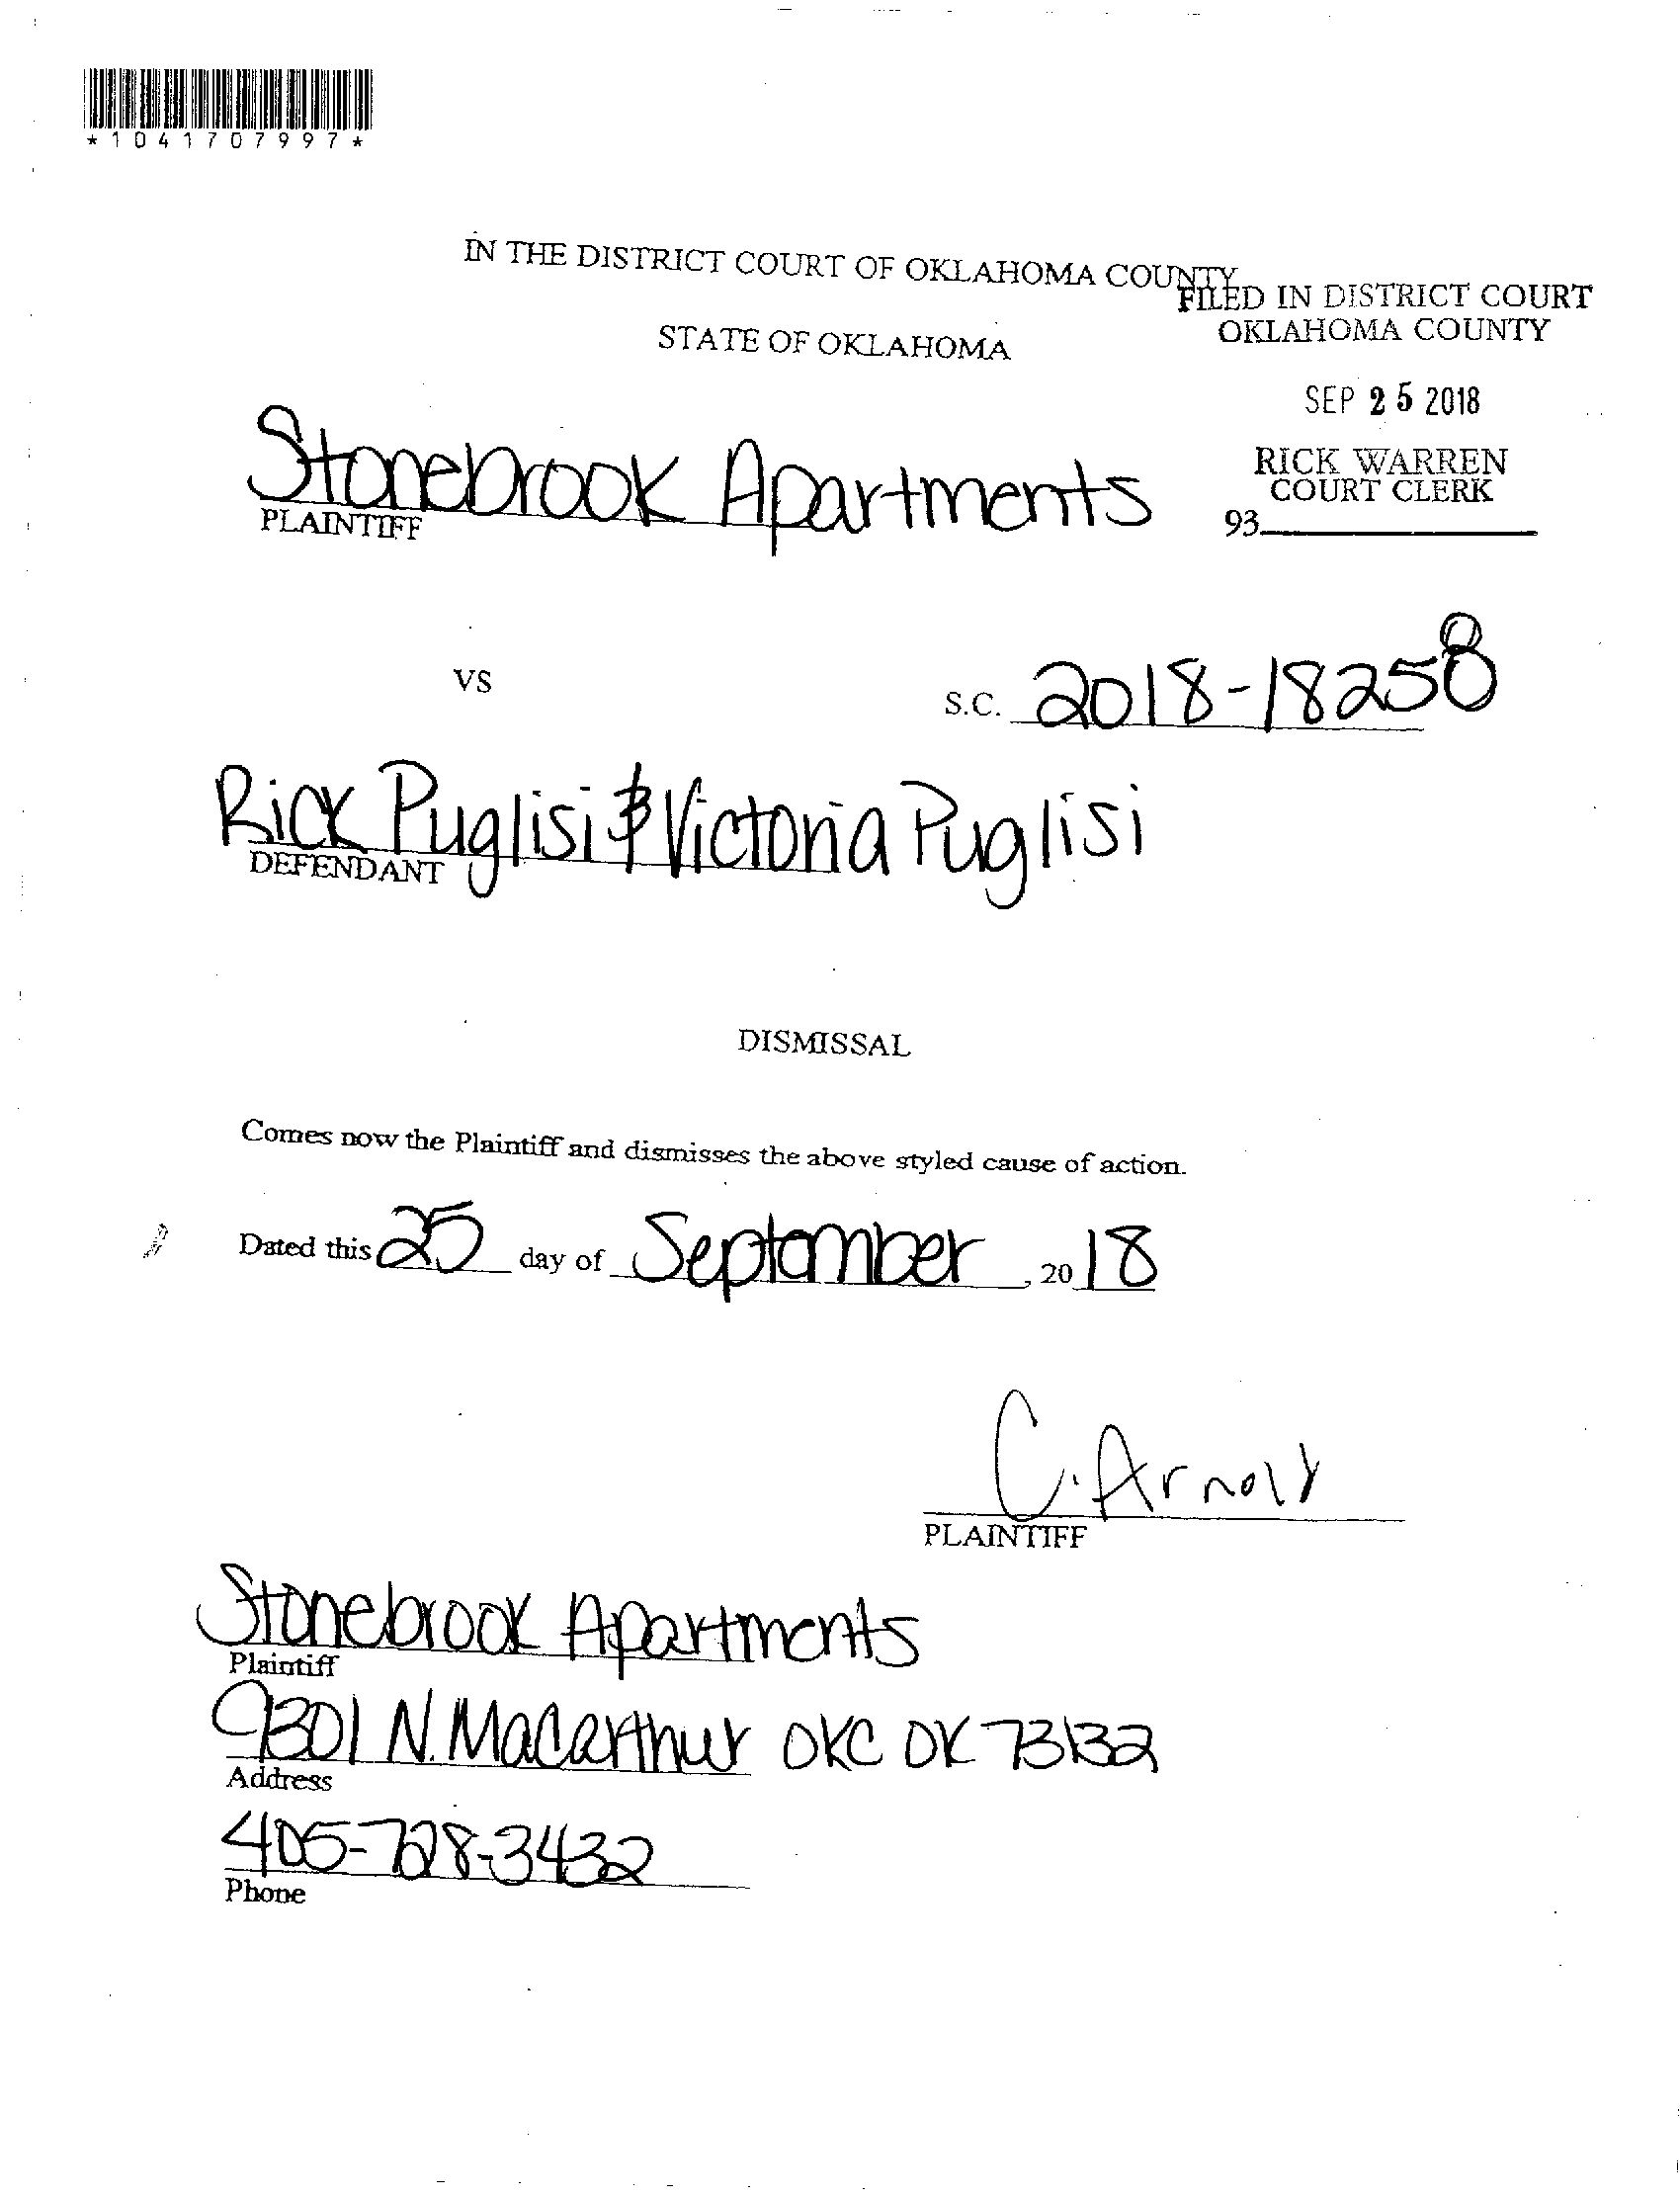 *1041707997*
IN THE DISTRICT COURT OF OKLAHOMA COUNTY
STATE OF OKLAHOMA
FILED IN DISTRICT COURT
OKLAHOMA COUNTY
SEP 25 2018
RICK WARREN
COURT CLERK
93
Stonebrook Apartments
PLAINTIFF
VS
S.C. 2018-18258
Rick Puglisi & Victoria Puglisi
DEFENDANT
DISMISSAL
Comes now the Plaintiff and dismisses the above styled cause of action.
Dated this 25 day of September, 20 18
C. Arnold
PLAINTIFF
Stonebrook Apartments
Plaintiff
9301 N. MacArthur OKC OK 73132
Address
405-728-3432
Phone